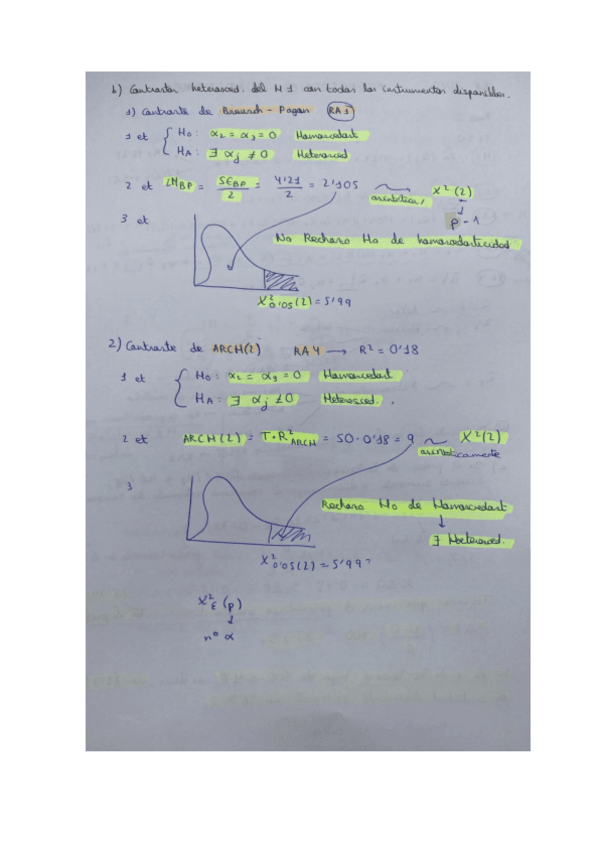 b) Contrastar heterosced. del M1 con todos los instrumentos disponibles.
1) Contraste de Breusch-Pagan RA3
1 et { H0: α2 = α3 = 0 Homoscedast
HA: ∃ αj ≠ 0 Heterosced
2 et LMBP = SEBP/2 = 4'21/2 = 2'105 ~ asintótica/ X²(2)
↓
p-1
3 et
No Rechazo H0 de homoscedasticidad
X²0'05(2) = 5'99
2) Contraste de ARCH(2) RA4 → R² = 0'18
1 et { H0: α2 = α3 = 0 Homoscedast
HA: ∃ αj ≠ 0 Heterosced.
2 et ARCH(2) = T·R²ARCH = 50·0'18 = 9 ~ X²(2)
asintóticamente
3
Rechazo H0 de Homoscedast
↓
∃ Heterosced.
X²0'05(2) = 5'99
X²ε(p)
↓
nº α